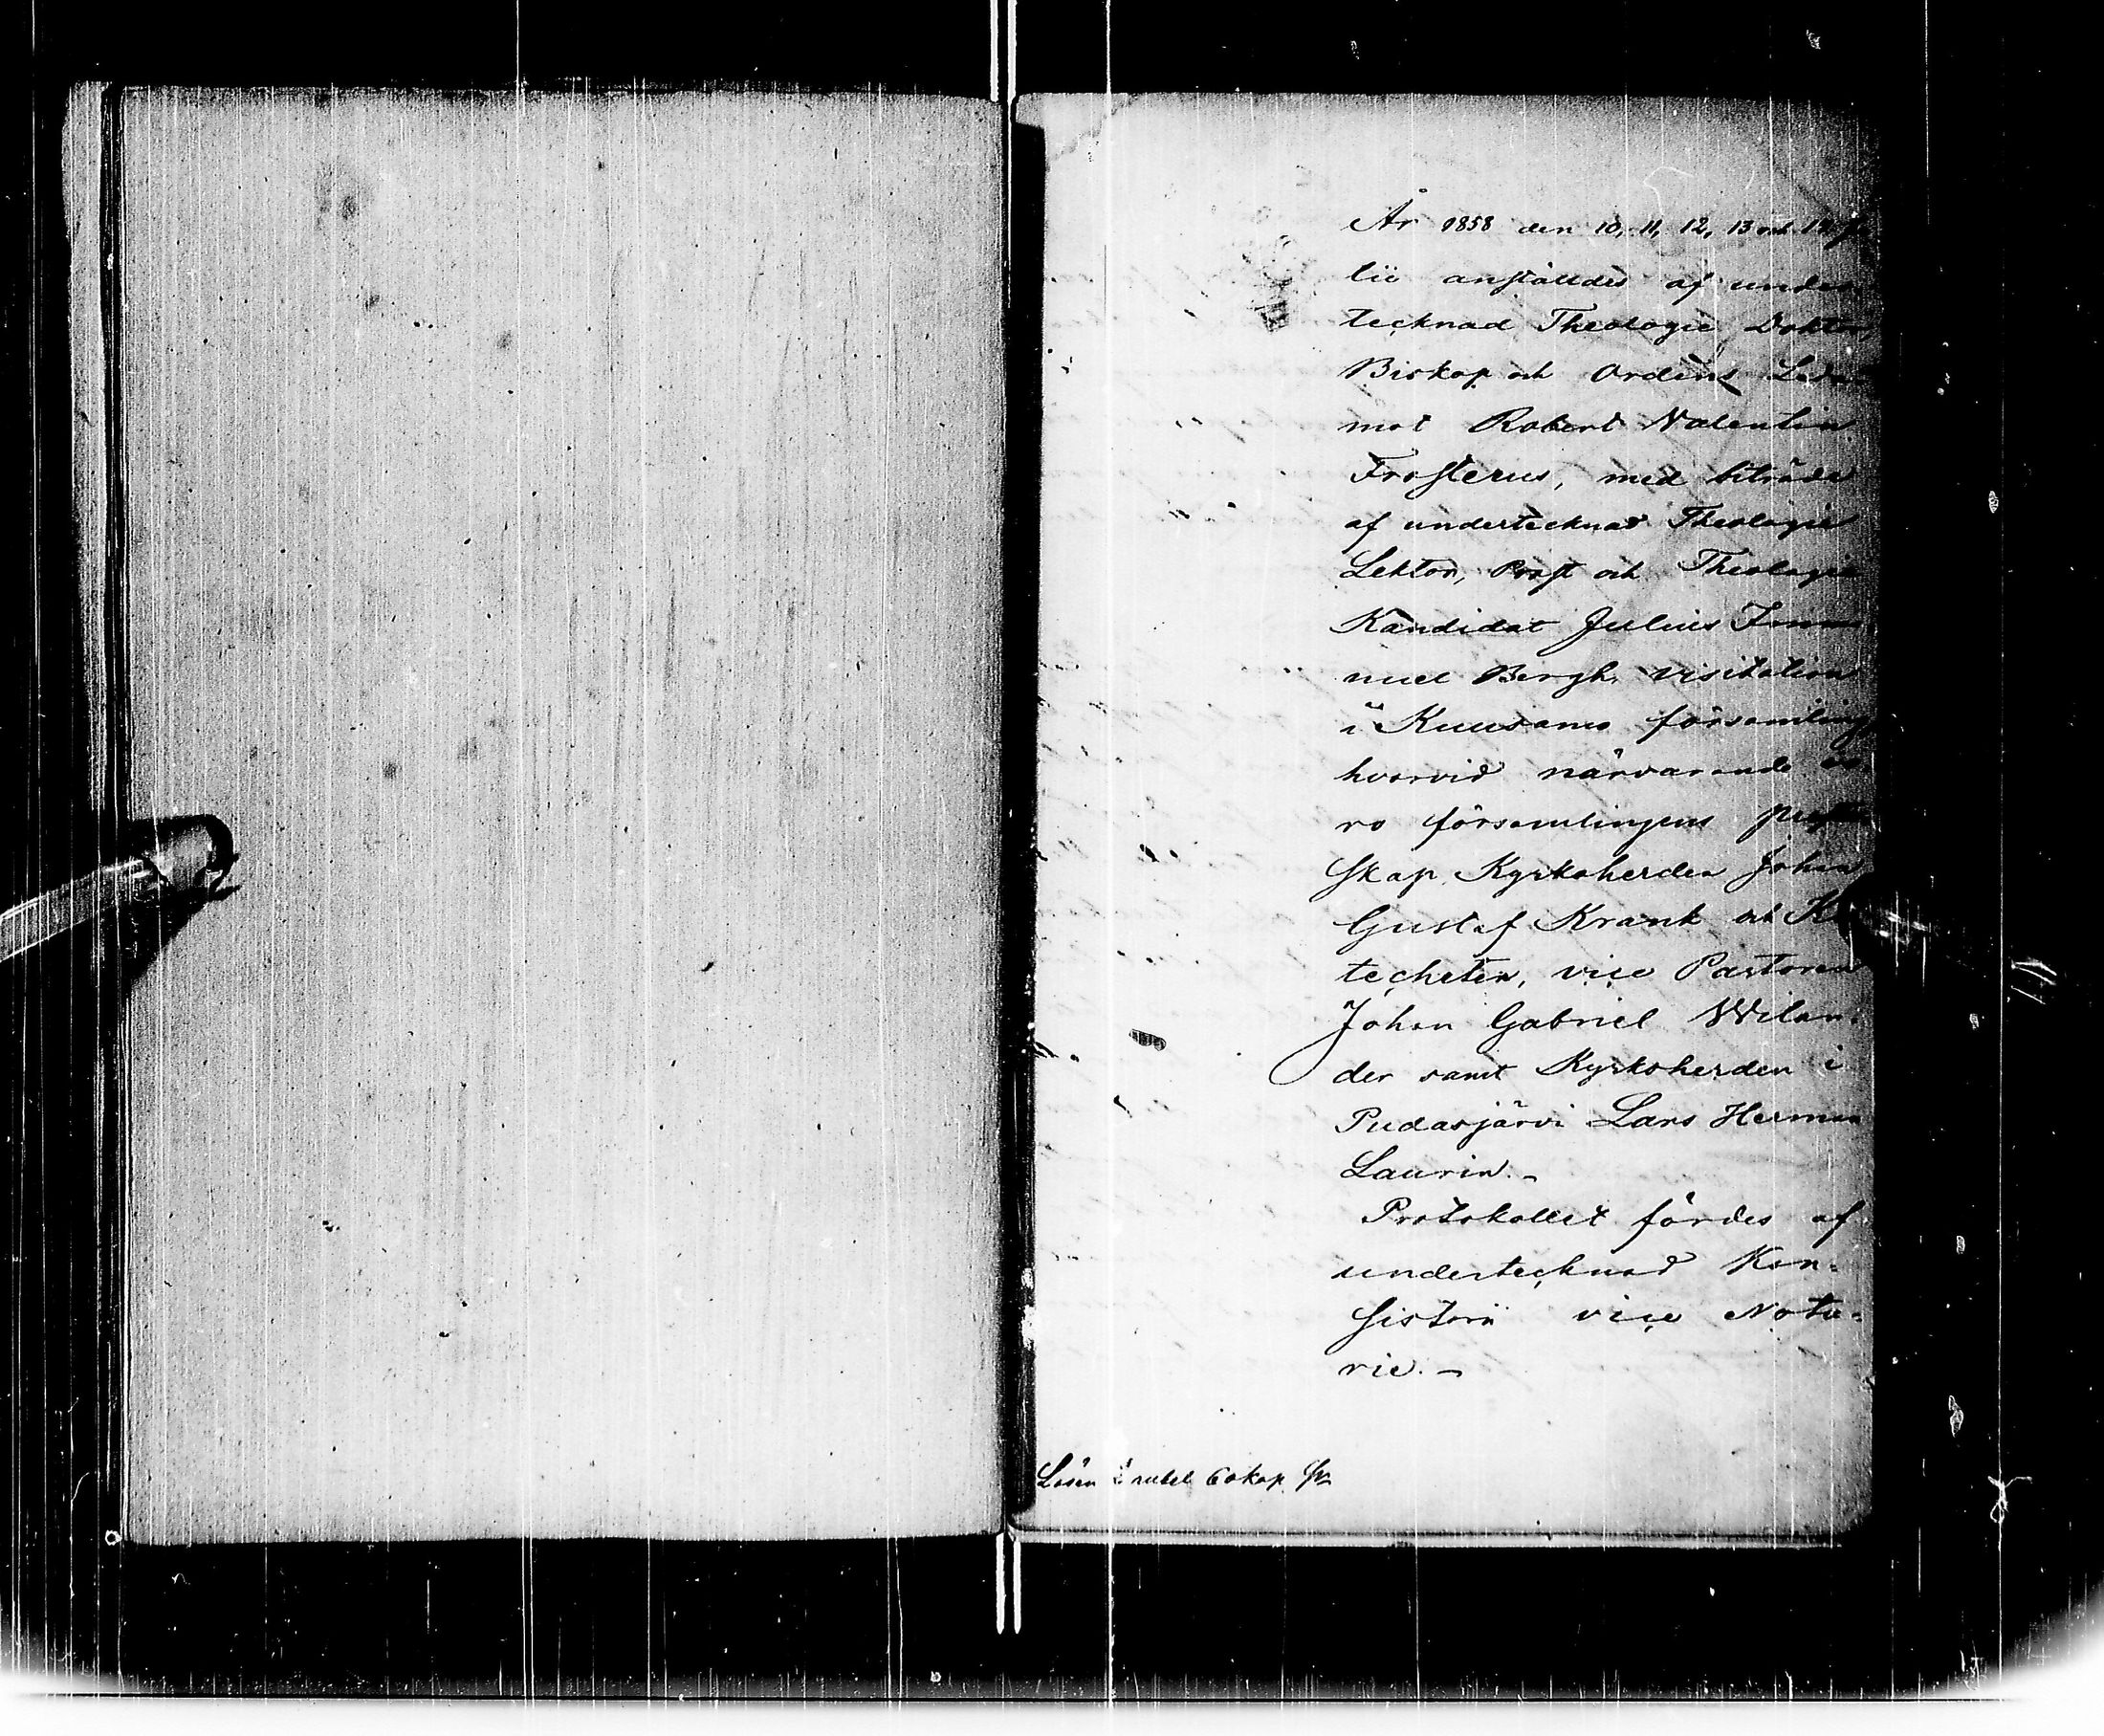 År 1858 den 10, 11, 12, 13 och 14 Ju
lii anställdes af under
tecknad Theologie Doktor,
Biskop och Ordens Leda
mot Robert Valentin
Frosterus, med biträde
af undertecknad Theologie
Lektor, Prost och Theologie
Kandidat Julius Imma
nuel Bergh, visitation
i Kuusamo församling,
hvarvid närvarande vo
ro församlingens prester
skap, Kyrkoherden Johan
Gustaf Krank och Ka
techeten, vice Pastoren
Johan Gabriel Wilan-
der samt Kyrkoherden i
Pudasjärvi Lars Herman
Laurin.-
Protokollet fördes af
undertecknad Kon-
sistorii vice Nota-
rie.-
Lösen rubel 60 kop. Sr